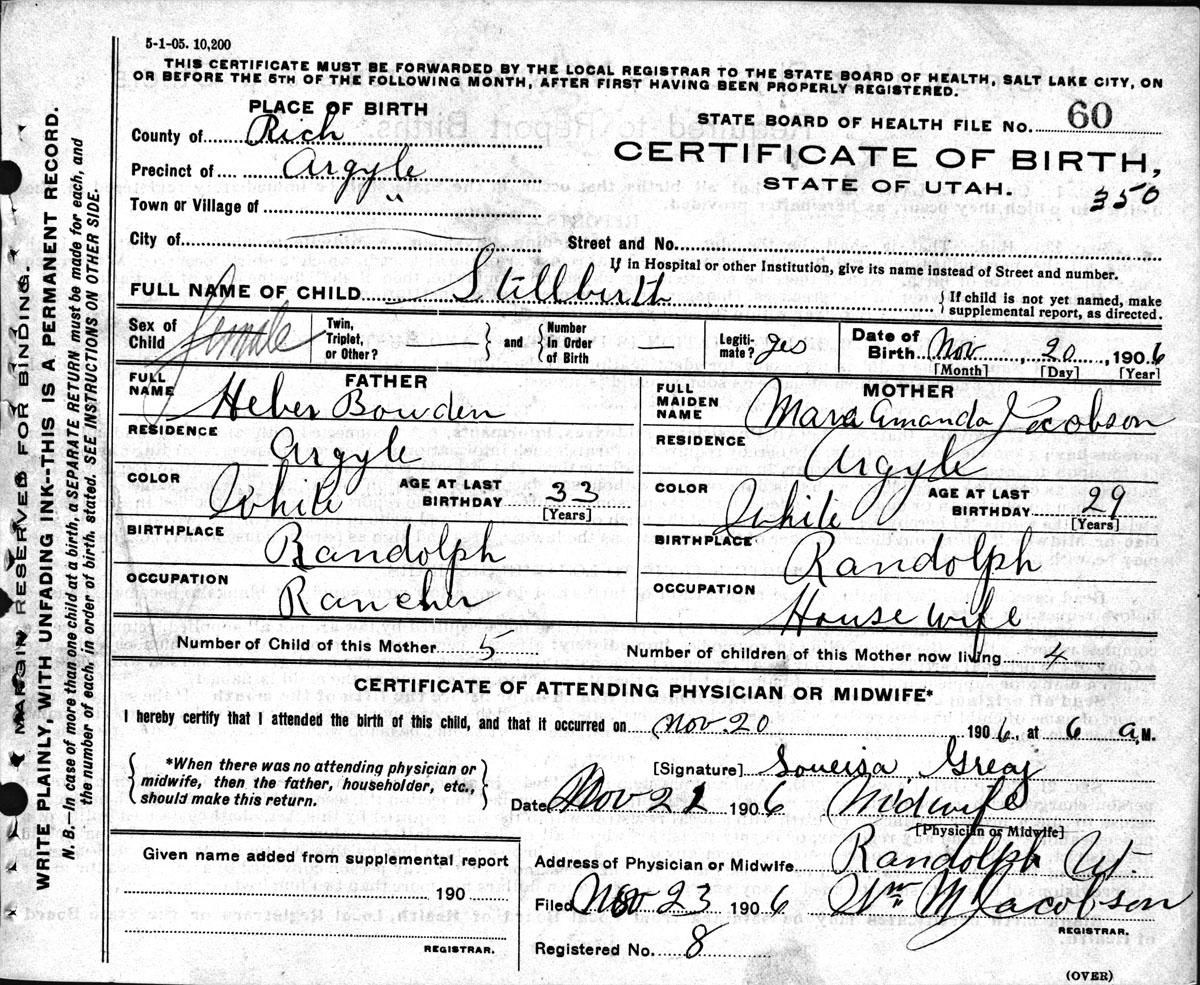 5-1-05. 10,200
THIS CERTIFICATE MUST BE FORWARDED BY THE LOCAL REGISTRAR TO THE STATE BOARD OF HEALTH, SALT LAKE CITY, ON
OR BEFORE THE 5TH OF THE FOLLOWING MONTH, AFTER FIRST HAVING BEEN PROPERLY REGISTERED.
PLACE OF BIRTH
County of Rich
Precinct of Argyle
Town or Village of "
City of
STATE BOARD OF HEALTH FILE No. 60
CERTIFICATE OF BIRTH,
STATE OF UTAH. 350
Street and No.
If in Hospital or other Institution, give its name instead of Street and number.
FULL NAME OF CHILD Stillbirth
{ If child is not yet named, make
supplemental report, as directed.
Sex of Child female
Twin, Triplet, or Other?
and
Number in Order of Birth
Legitimate? yes
Date of Birth Nov, 20, 1906
[Month] [Day] [Year]
FATHER
FULL NAME Heber Bowden
RESIDENCE Argyle
COLOR White AGE AT LAST BIRTHDAY 33 [Years]
BIRTHPLACE Randolph
OCCUPATION Rancher
MOTHER
FULL MAIDEN NAME Mara Amanda Jacobson
RESIDENCE Argyle
COLOR White AGE AT LAST BIRTHDAY 29 [Years]
BIRTHPLACE Randolph
OCCUPATION House wife
Number of Child of this Mother 5
Number of children of this Mother now living 4
CERTIFICATE OF ATTENDING PHYSICIAN OR MIDWIFE*
I hereby certify that I attended the birth of this child, and that it occurred on Nov 20 1906, at 6 a.M.
{ *When there was no attending physician or
midwife, then the father, householder, etc.,
should make this return. }
[Signature] Soueisa Gray
Date Nov 21 1906 Midwife
[Physician or Midwife]
Given name added from supplemental report
190
REGISTRAR.
Address of Physician or Midwife Randolph Ut.
Filed Nov 23 1906 Wm M Jacobson
REGISTRAR.
Registered No. 8
(OVER)
MARGIN RESERVED FOR BINDING.
WRITE PLAINLY, WITH UNFADING INK--THIS IS A PERMANENT RECORD.
N. B.—In case of more than one child at a birth, a SEPARATE RETURN must be made for each, and
the number of each, in order of birth, stated. SEE INSTRUCTIONS ON OTHER SIDE.